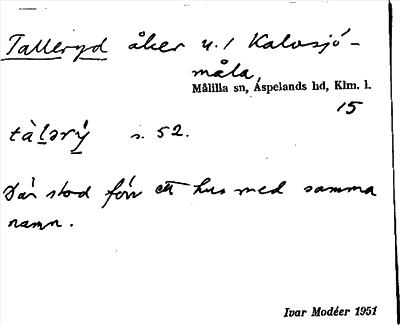 Talleryd åker u. / Kalvsjö-
måla,
Målilla sn, Aspelands hd, Klm. l.
15
tàlərý s. 52.
Där stod förr ett hus med samma
namn.
Ivar Modéer 1951